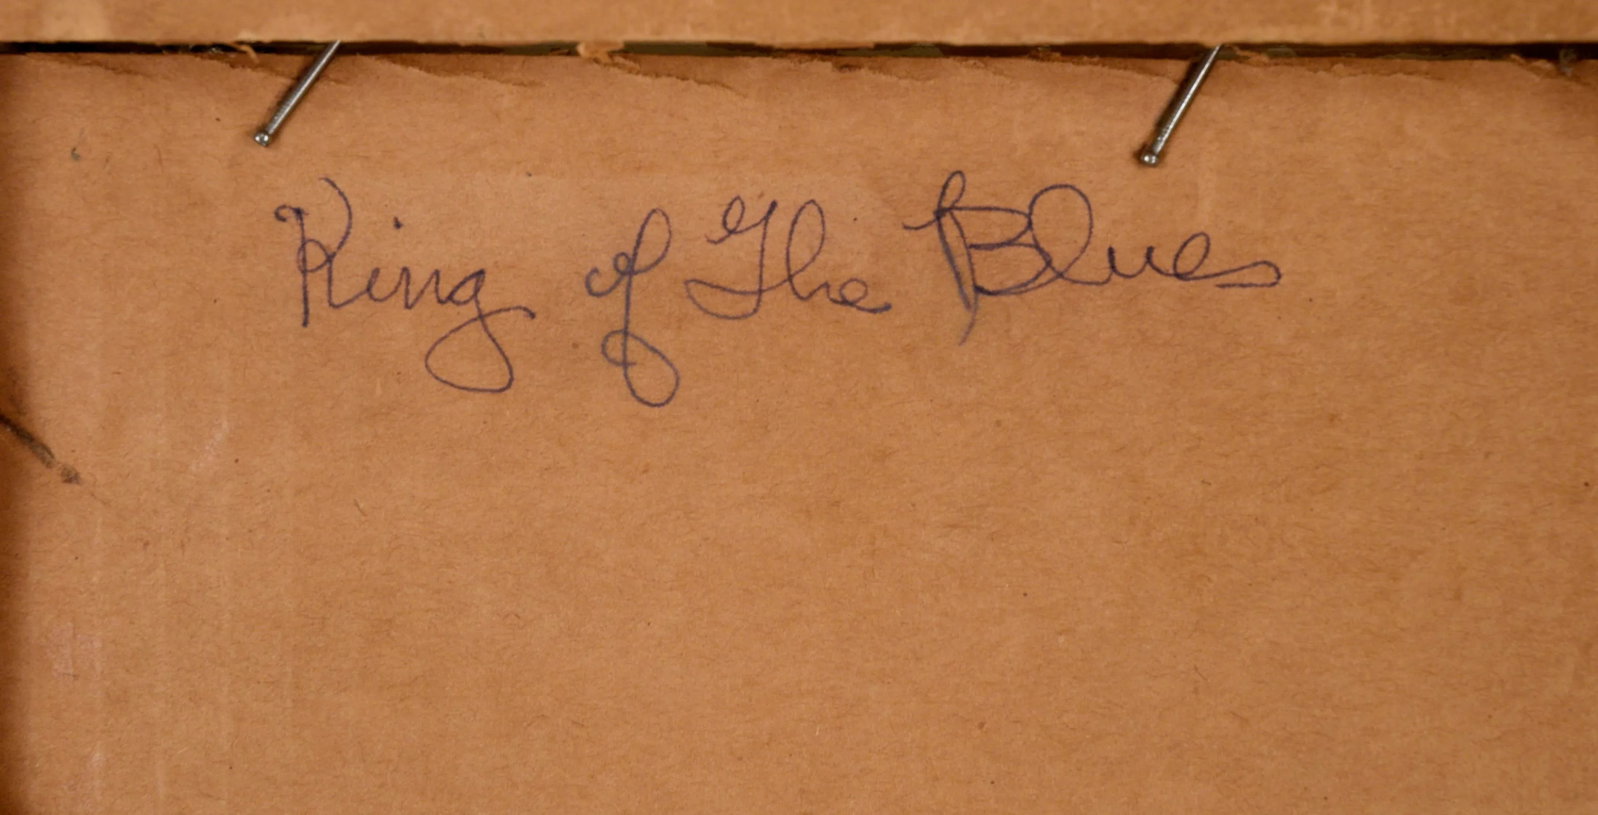 King of The Blues